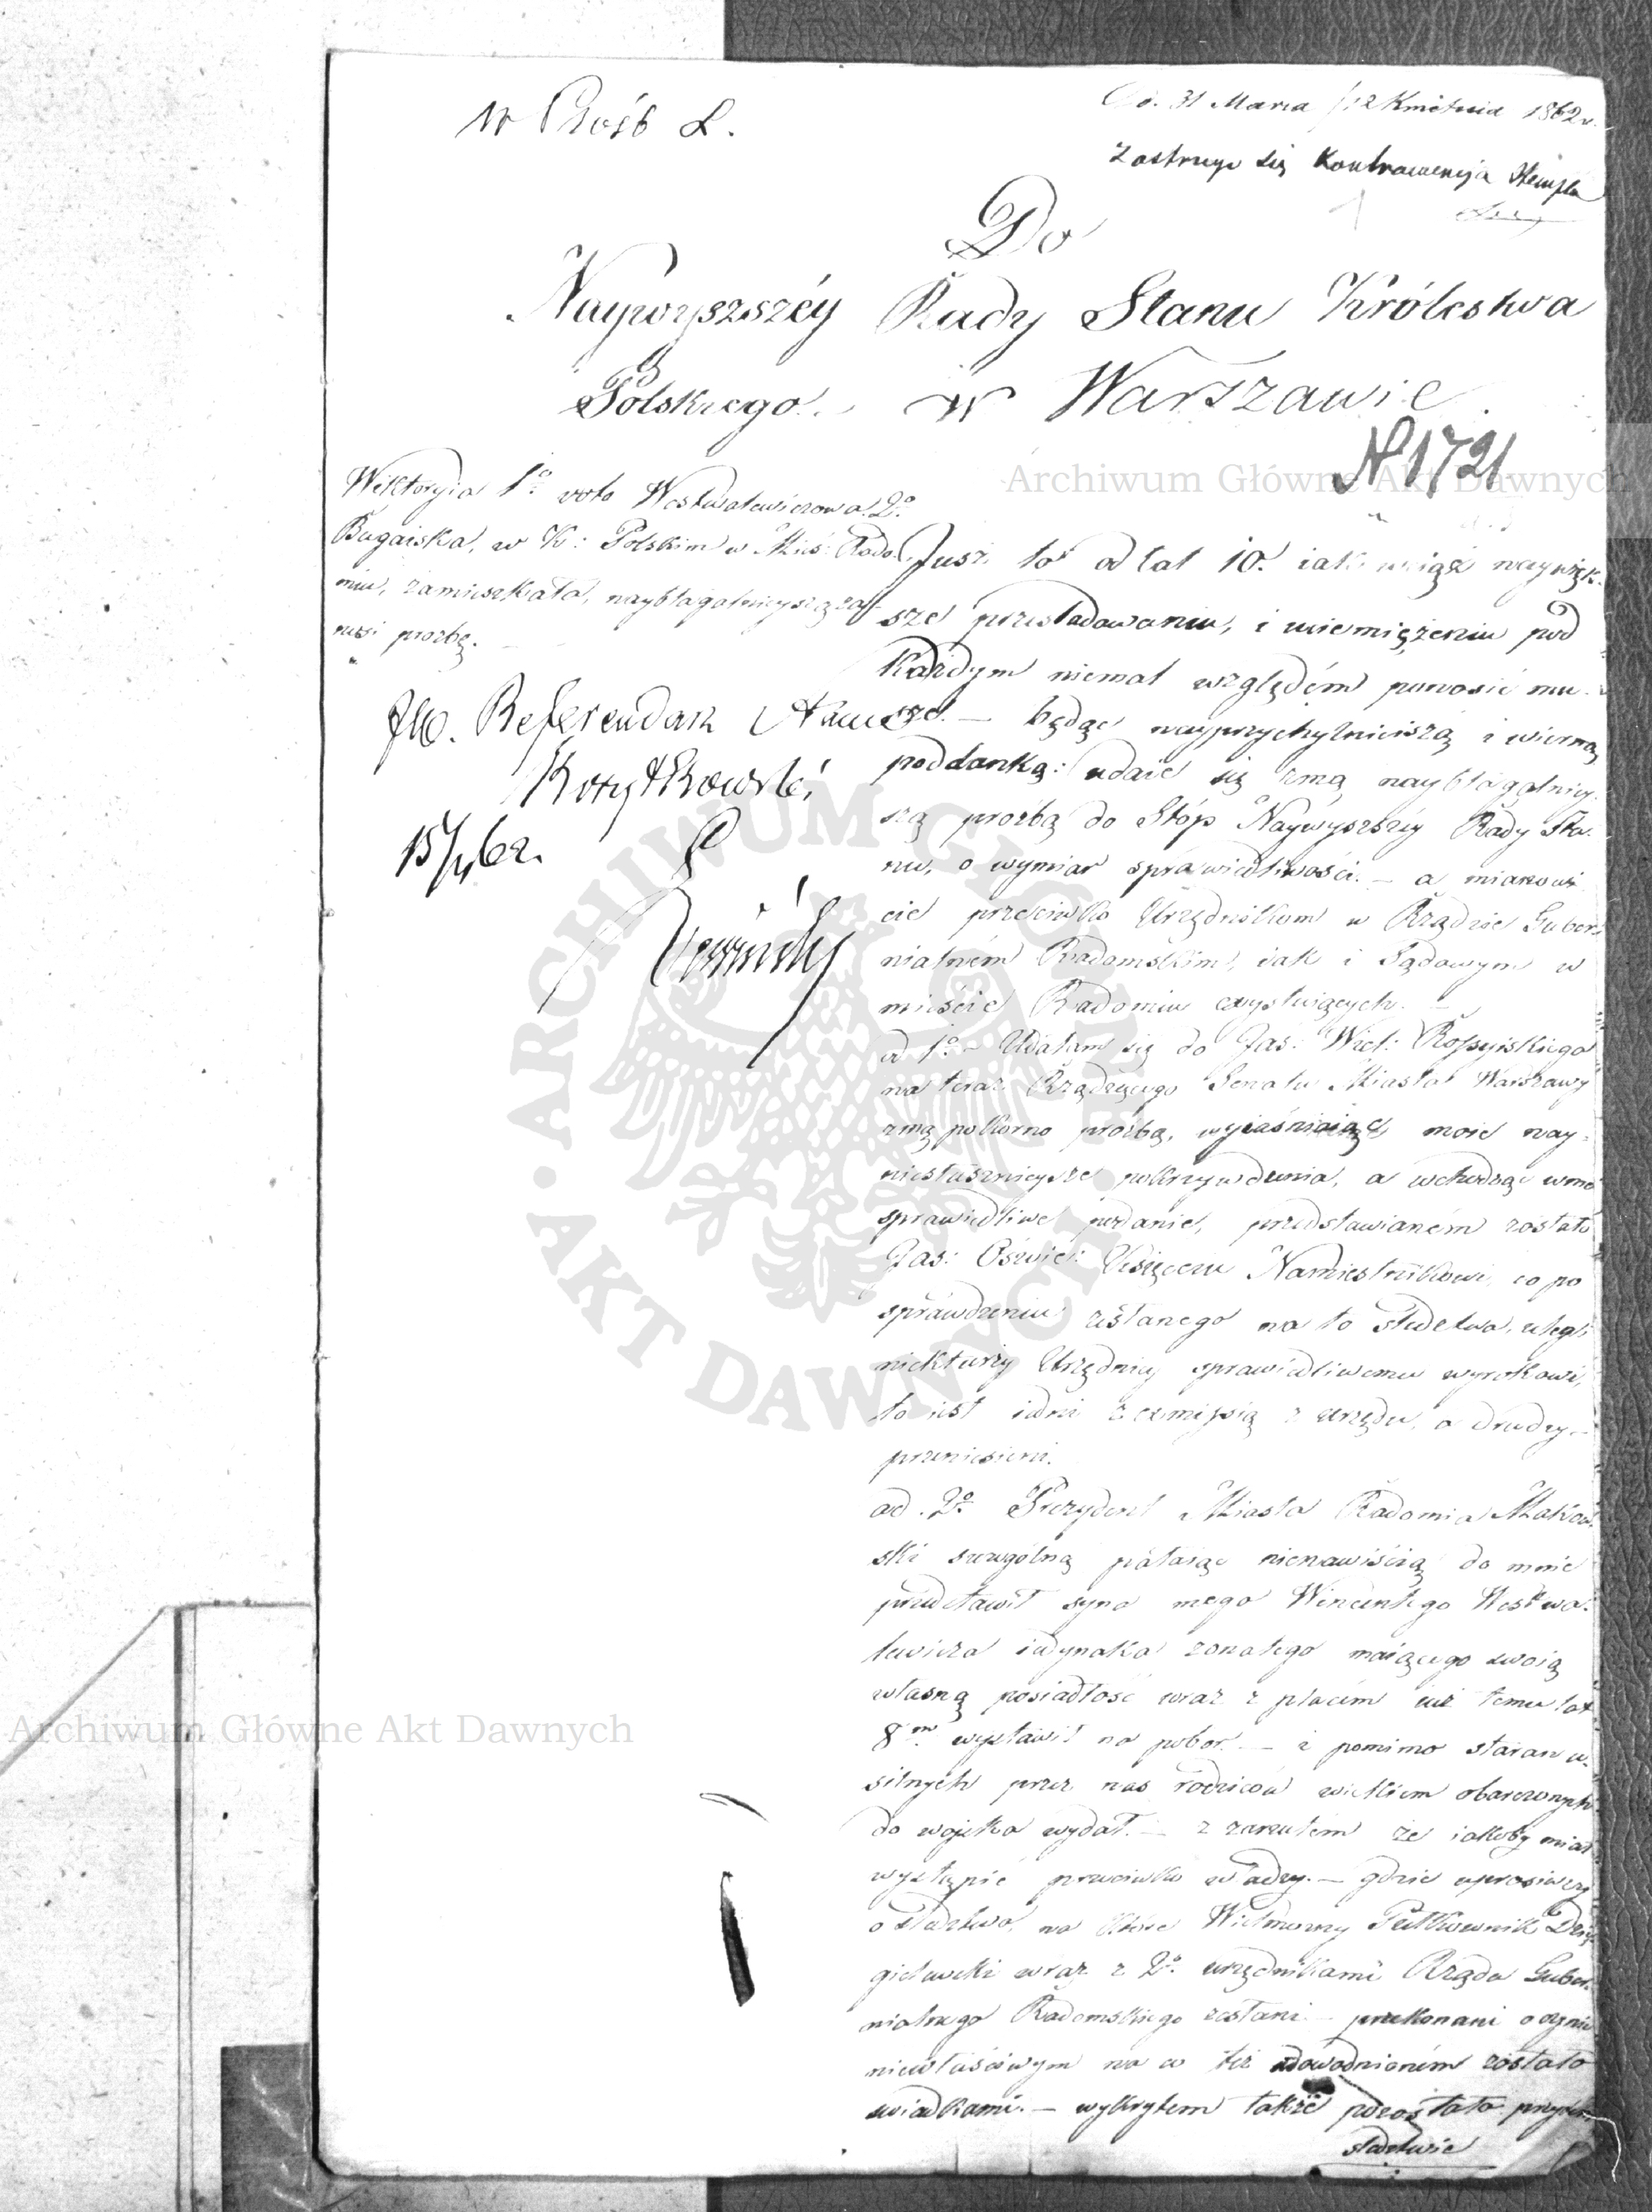 w Prośb L.
31 Marca / 12 Kwietnia 1862 r.
zastrzega się Kontrawencyja Stempla
Do
Naywyszszéy Rady Stanu Królestwa
Polskiego. w Warszawie.
N 1721
Archiwum Główne Akt Dawnych
Wiktoryia 1o voto 2o
w K: Polskim w Mieś: Rado-
miu, zamieszkała, naybłagalnieyszą za-
nosi prozbę.
JW. Referendarz Stanu
15/4 62.
Jusz to od lat 10. iak wciąż naywięk-
sze prześladowaniu, i uciemiężeniu pod
Każdym niemal względém ponosić mu-
szę. — będąc nayprzychylnieiszą i wierną
poddanką: udaie się zmą naybłagalniey-
szą prozbą do Stóp Naywyszszéy Rady Sta-
nu, o wymiar sprawiedliwości. — a mianowi
cie przeciwko Urzędnikom w Rządzie Guber-
nialném Radomskim, iak i Sądowym w
mieście Radomiu exystuiących. —
ad 1o — Udałam się do Jas: Wiel:
na teraz Rządzącego Senatu Miasta Warszawy
zmą pokorno prozbą, wyiaśniaiąc moie nay-
niesłusznieysze pokrzywdzenia, a wchodząc w me
sprawiedliwe podanie, przedstawianém zostało
Jas: Oświe: Księciu Namiestnikowi, co po
sprawdzeniu zesłanego na to śledztwa, ulegli
niektórzy Urzędnicy sprawiedliwemu wyrokowi,
to iest iedni z urzędu, a drudzy —
przeniesieni.
ad. 2o Prezydent Miasta Radomia Makow-
ski szczgólną pałaiąc nienawiścią do mnie
przedstawił syna mego Wincentego
iedynaka zonatego maiącego swoią
własną posiadłość wraz z placem iuż temu lat
8m wystawił na pobor. — i pomimo staran u-
silnych przez nas rodziców wiekiem obarczonych
do wojska wydał. — z zarzutem ze iakoby miał
wystąpić przeciwko władzy. — gdzie uprosiwszy
o śledztwo, na które Wielmożny Pułkownik
wraz z 2a urzędnikami Rządu Guber-
nialnego Radomskiego zesłani. — przekonani o czynie
niewłaściwym na co też udowodnioném zostało
świadkami. — wykrytem także pozostało przytem
śledztwie
Archiwum Główne Akt Dawnych
ARCHIWUM GŁÓWNE • AKT DAWNYCH •